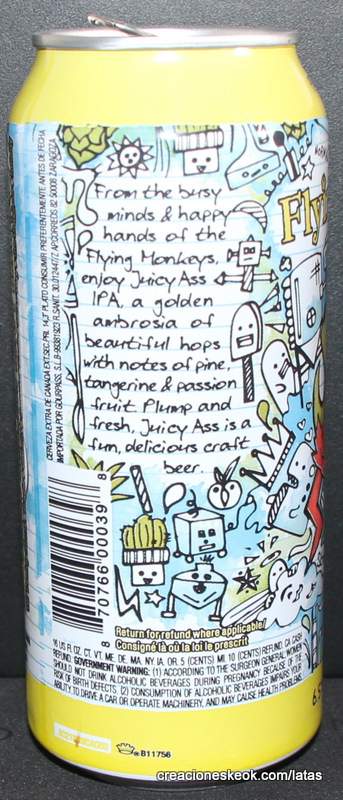 From the busy
minds & happy
hands of the
Flying Monkeys,
enjoy Juicy Ass
IPA, a golden
ambrosia of
beautiful hops
with notes of pine,
tangerine & passion
fruit. Plump and
fresh, Juicy Ass is a
fun, delicious craft
beer.
Flyi
CERVEZA EXTRA DE CANADA EXT.SEC.PRI. 14,3º PLATO CONSUMIR PREFERENTEMENTE ANTES DE FECHA
IMPORTADA POR GOURPASS, S.L.B-99381923 R.SANIT. 30.012447/Z APCORREOS 82 50008 ZARAGOZA
8 70766 00039 8
Return for refund where applicable/
Consigné là où la loi le prescrit
16 US FL OZ. CT. VT. ME. DE. MA. NY, IA, OR. 5 (CENTS) MI 10 (CENTS) REFUND, CA CASH
REFUND. GOVERNMENT WARNING: (1) ACCORDING TO THE SURGEON GENERAL WOMEN
SHOULD NOT DRINK ALCOHOLIC BEVERAGES DURING PREGNANCY BECAUSE OF THE
RISK OF BIRTH DEFECTS. (2) CONSUMPTION OF ALCOHOLIC BEVERAGES IMPAIRS YOUR
ABILITY TO DRIVE A CAR OR OPERATE MACHINERY, AND MAY CAUSE HEALTH PROBLEMS.
6.5
B11756
creacioneskeok.com/latas